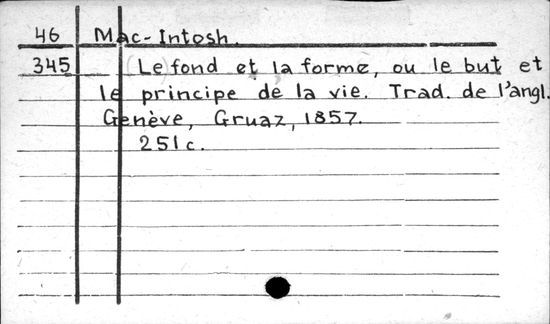 46 Mac-Intosh.
345 Le fond et la forme, ou le but et
le principe de la vie. Trad. de l'angl.
Genève, Gruaz, 1857.
251 c.